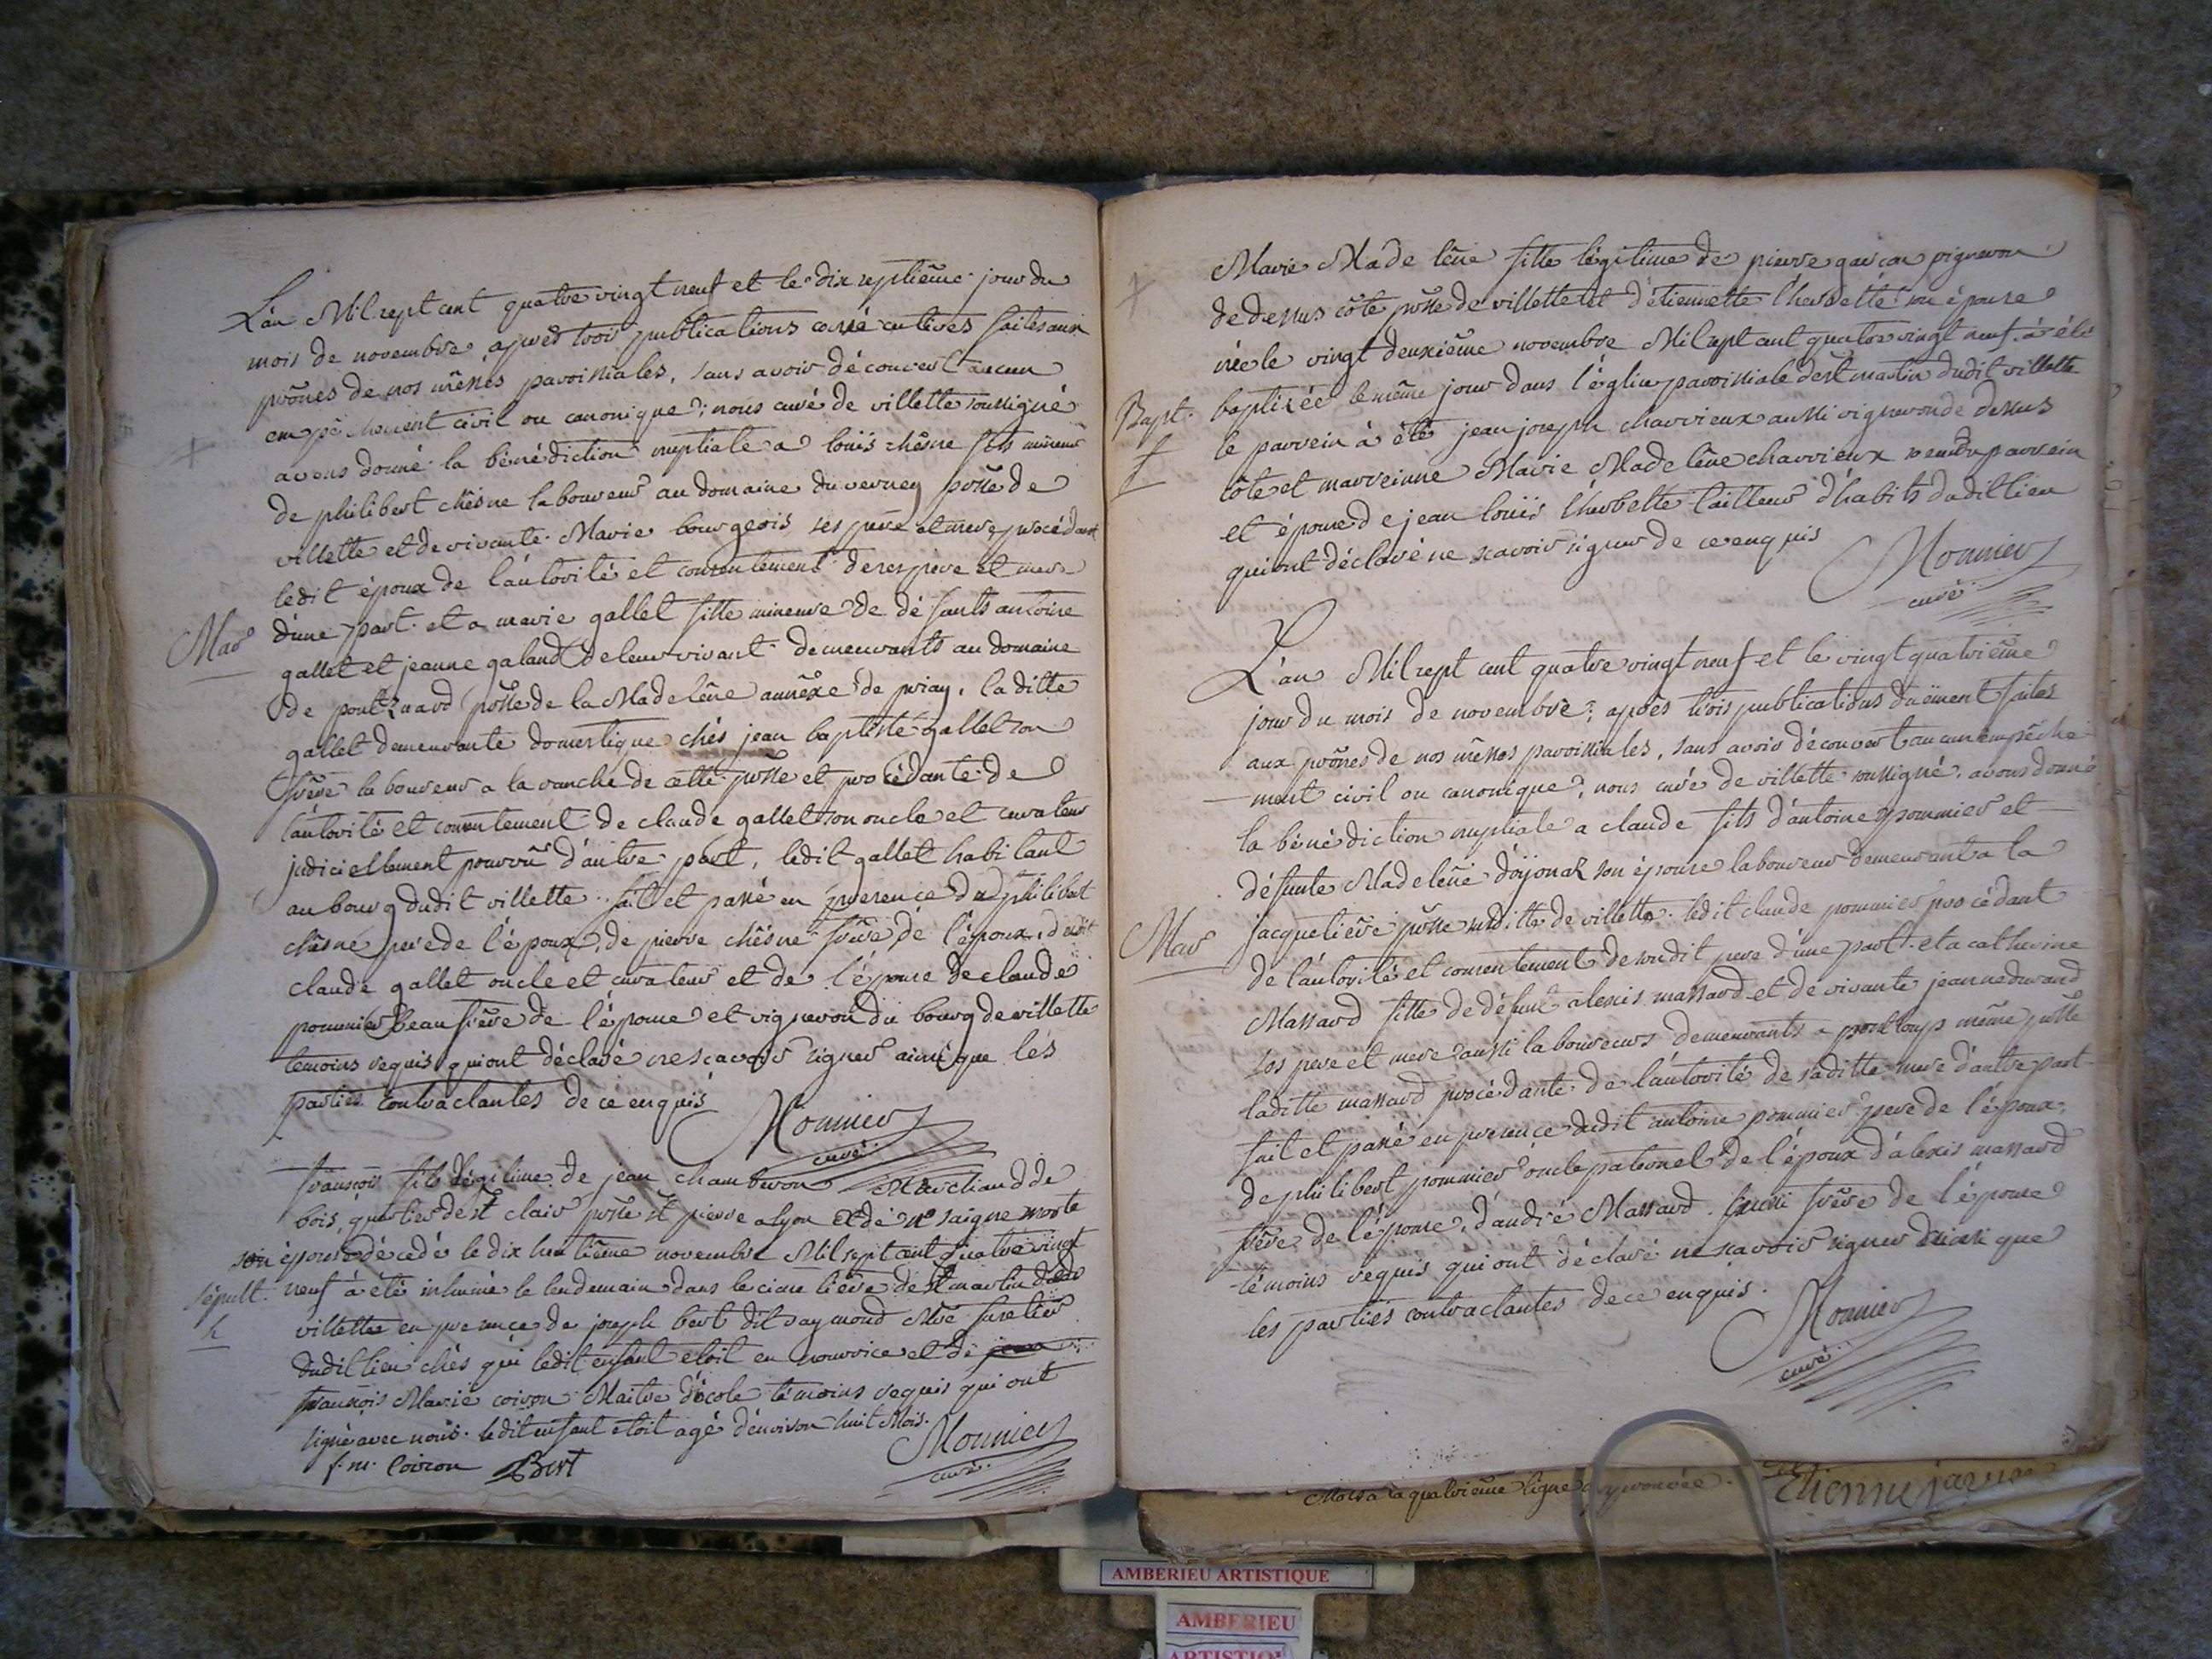 L'an Mil sept cent quatre vingt neuf et le dix septième jour du
mois de novembre, apres trois publications consécutives faites aux
prônes de nos messes paroissiales, sans avoir découvert aucun
empêchement civil ou canonique; nous curé de villette soussigné
avons donné la bénédiction nuptiale a louis chêsne fils mineur
de philibert chêsne laboureur au domaine du verney psse de
villette et de vivante Marie bourgeois ses père et mere, procédant
ledit époux de l'autorité et consentement de ses père et mere
Mar d'une part. et a marie gallet fille mineure de défunts antoine
gallet et jeanne galand de leur vivant demeurants au domaine
de psse de la Madelêne annéxe de priay. la ditte
gallet demeurante domestique chés jean baptiste gallet son
frère laboureur a la ranche de cette psse et procédante de
l'autorité et consentement de claude gallet son oncle et curateur
judiciellement pourvû d'autre part, ledit gallet habitant
au bourg dudit villette. fait et passé en presence de philibert
chêsne pere de l'époux, de pierre chêsne frère de l'époux, dudit
claude gallet oncle et curateur et de l'épouse de claude
pommier beau frère de l'épouse et vigneron du bourg de villette
temoins requis qui ont déclaré ne scavoir signer ainsi que les
parties contractantes de ce enquis
Monnier
curé
françois fils légitime de jean chamberon Marchand de
bois, quartier de st clair psse st pierre a lyon et de saigne morte
son épouse décedé le dix huitième novembre Mil sept cent quatre vingt
sépult. neuf à été inhumé le lendemain dans le cimetière de st martin dudit
h villette en presence de joseph bert dit raymond
dudit lieu chés qui ledit enfant etoit en nourrice et de jean
françois Marie coiron Maitre d'école témoins requis qui ont
signé avec nous. ledit enfant etoit agé d'environ huit Mois.
f. m. Coiron Bert Monnier
curé.
Marie Madelêne fille légitime de pierre garçon vigneron
de dessus côte psse de villette et d'étiennette l'herbette son épouse
née le vingt deuxième novembre Mil sept cent quatre vingt neuf à été
Bapt. baptisée le même jour dans l'église paroissiale de st martin dudit villette
f le parrein à été jean joseph charvieux aussi vigneron de dessus
côte et marreinne Marie Madelêne charvieux dudit parrein
et épouse de jean louis l'herbette tailleur d'habits dudit lieu
qui ont déclaré ne scavoir signer de ce enquis
Monnier
curé
L'an Mil sept cent quatre vingt neuf et le vingt quatrième
jour du mois de novembre; après trois publications duëment faites
aux prônes de nos messes paroissiales, sans avoir découvert aucun empêche
ment civil ou canonique, nous curé de villette soussigné. avons donné
la bénédiction nuptiale a claude fils d'antoine pommier et
défunte Madelêne d'oÿonax son épouse laboureur demeurant a la
jacquetière psse susditte de villette. ledit claude pommier procédant
Mar de l'autorité et consentement de sondit pere d'une part. et a catherine
Massard fille de défunt alexis massard et de vivante jeanne durand
ses pere et mere aussi laboureurs demeurants a même psse
laditte massard procédante de l'autorité de saditte mere d'autre part
fait et passé en presence dudit antoine pommier pere de l'époux,
de philibert pommier oncle paternel de l'époux d'alexis massard
frère de l'épouse, d'andré Massard aussi frère de l'épouse
témoins requis qui ont déclaré ne scavoir signer ainsi que
les parties contractantes de ce enquis.
Monnier
curé
quatrième ligne approuvée. Etienne
AMBERIEU ARTISTIQUE
AMBERIEU
ARTISTIQUE